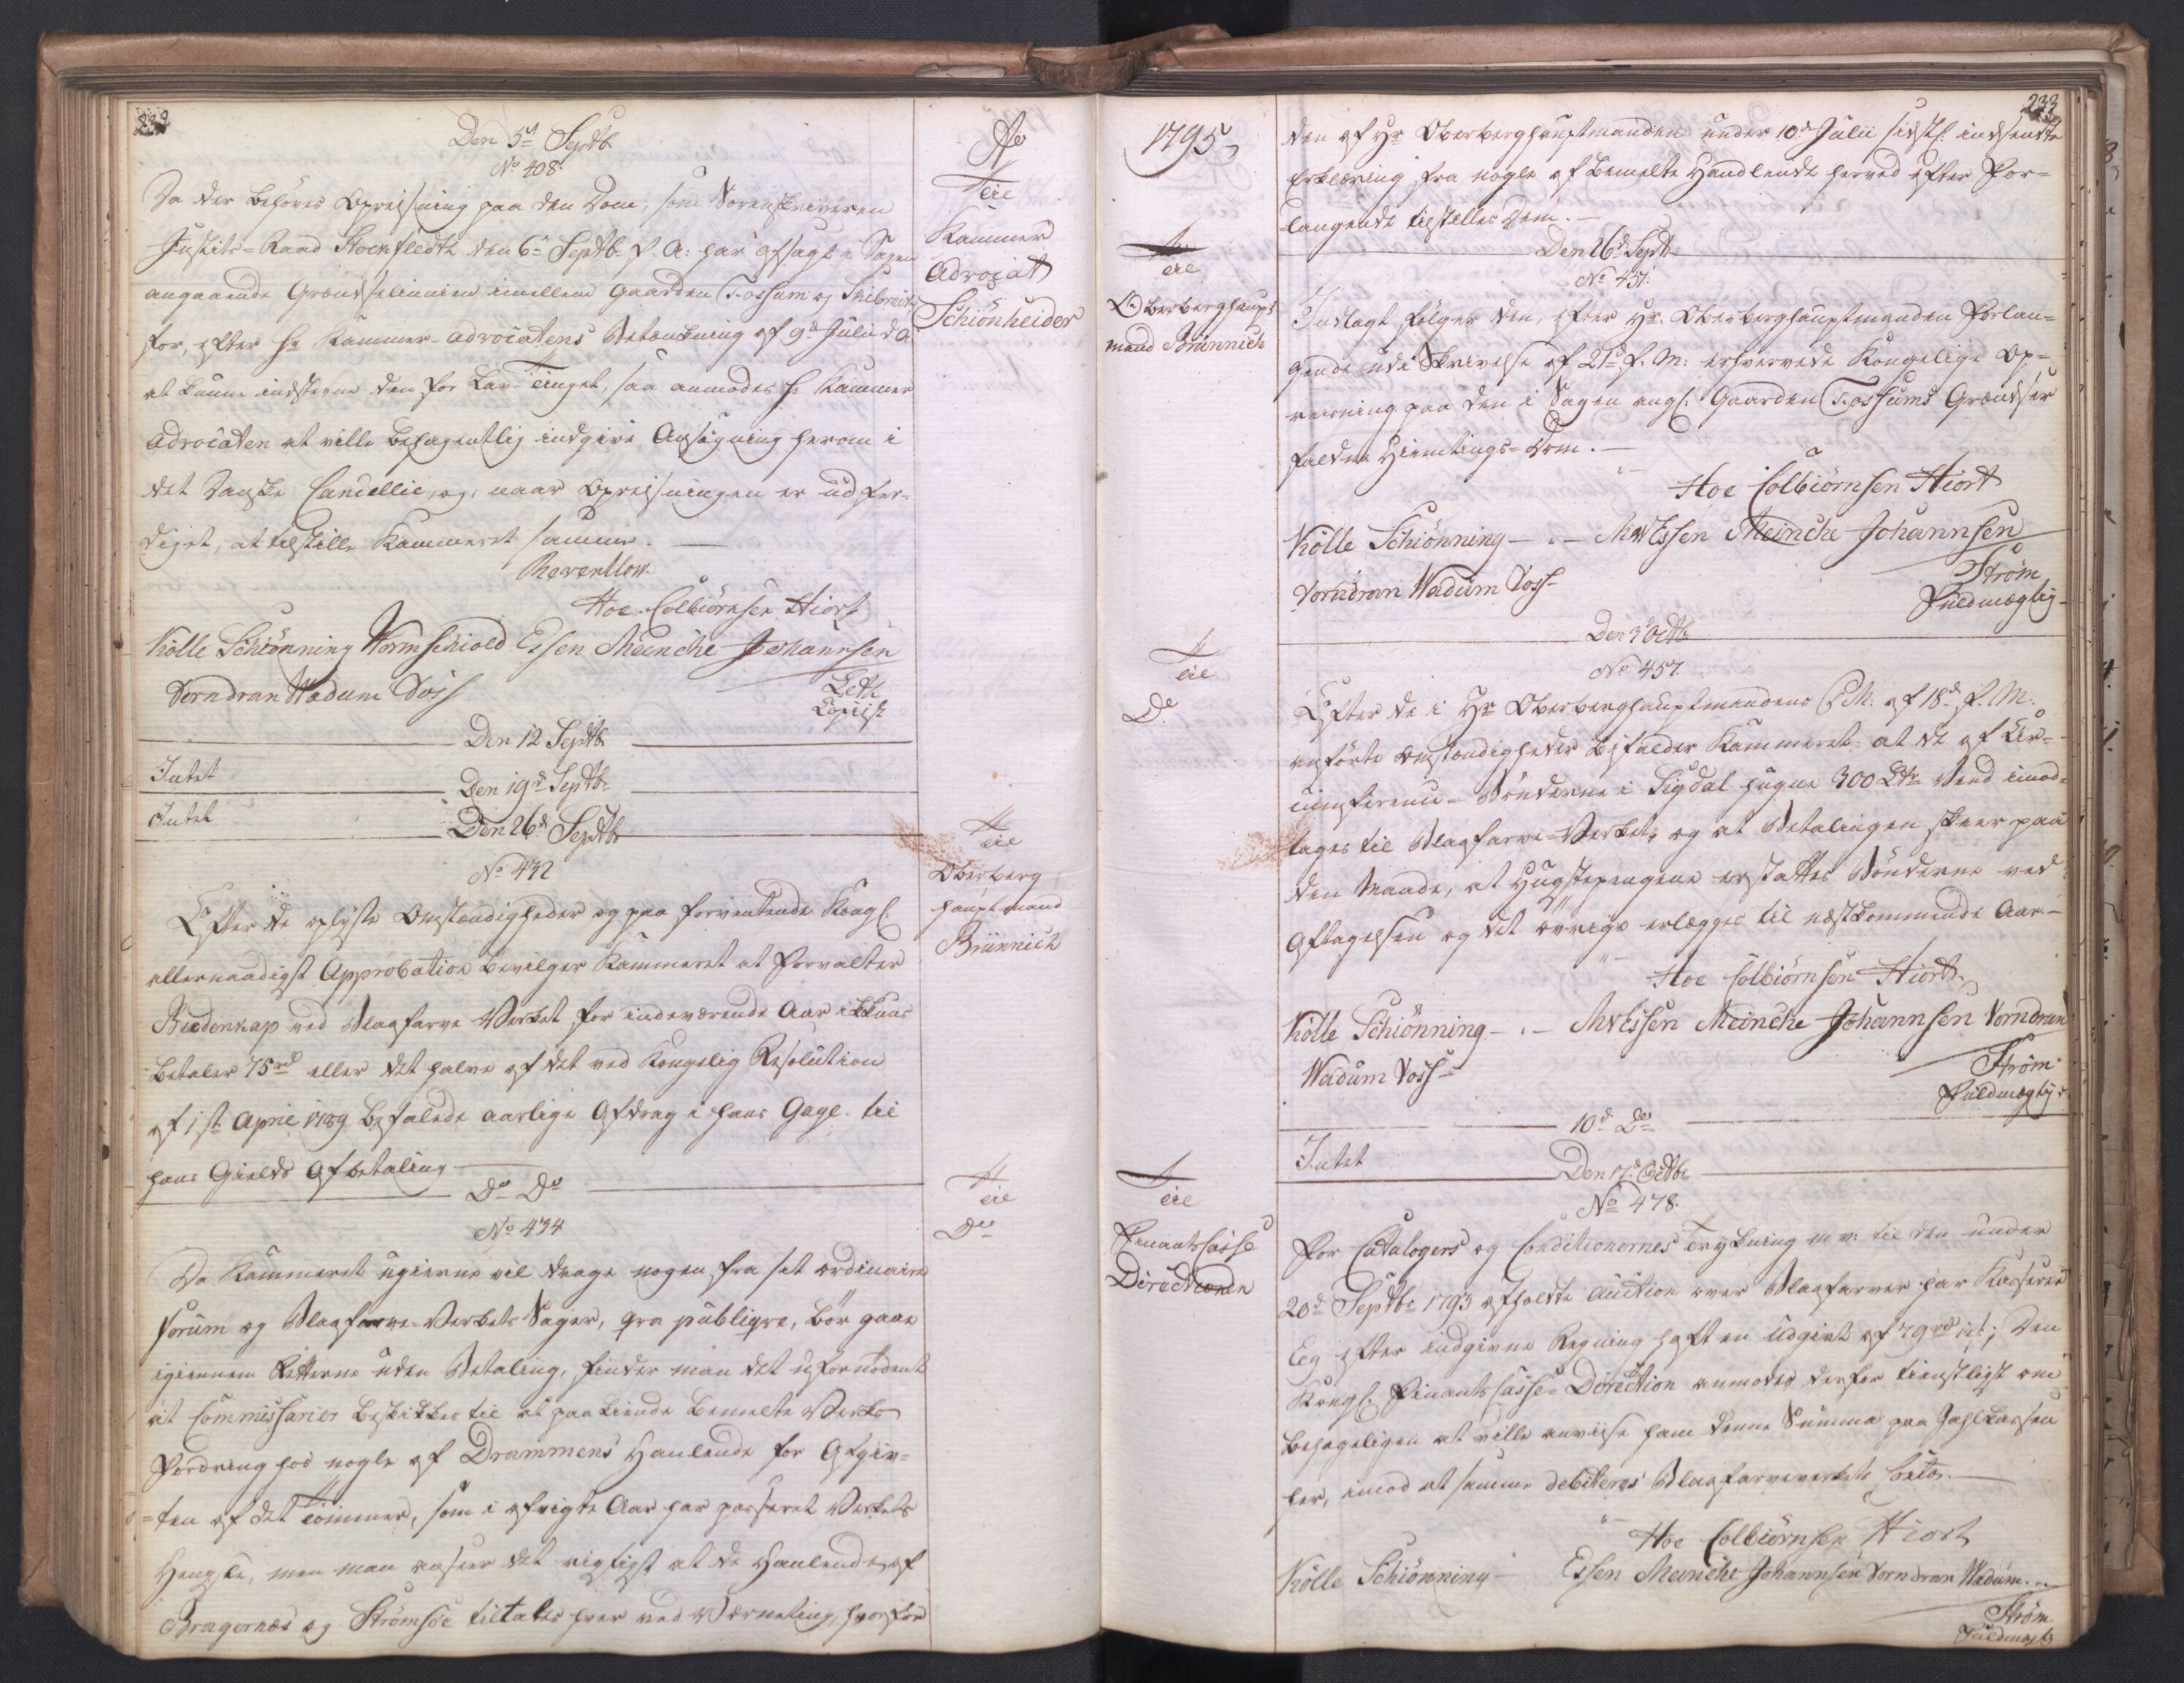 232
Den 5d Septb.
No 408.
Da der behøves Opreisning paa den Dom, som Sorenskriveren
Justits-Raad Stockfledt den 6te Septb. f. A: har afsagt i Sagen
angaaende Grændselinien imellem Gaarden Fossum og
for, efter Hr Kammer-Advocatens Betænkning af 9de Julii d. A.
at kunne indstevne den for Lav-Tinget, saa anmodes Hr Kammer
Advocaten at ville behagentlig indgive Ansøgning herom i
det Danske Cancellie, og, naar Opreisningen er udfer-
diget, at tilstille Kammeret samme.
Reventlow.
Hoe Colbiørnsen Hiort
Kölle Schiönning Wormschiold Essen Meincke Johannsen
Vorndran Wadum Voss
Leth
Copiist
Den 12 Septb.
Intet
Den 19d Septbr
Intet
Den 26d Septbr
No 432
Efter de oplyste Omstændigheder og paa forventende Kongl.
allernaadigst Approbation bevilger Kammeret at Forvalter
Bredenkap ved Blaafarve Verket for indeværende Aar ikkuns
betaler 75rd eller det halve af det ved Kongelig Resolution
af 1st April 1789 befalede aarlige Afdrag i hans Gage til
hans Gields Afbetaling
Do Do
No 434
Da Kammeret ugierne vil drage nogen fra sit ordinaire
Forum og Blaafarve-Verkets Sager, qra publiqve, bør gaae
igiennem Retterne uden Betaling, finder man det ufornødent
at Commissarier beskikkes til at paakiende bemelte Verks
Fordring hos nogle af Drammens Hanlende for Afgiv-
ten af det Tømmer, som i afvigte Aar har passeret Verkets
Hengsle, men man anseer det rigtigst at de Hanlende af
Bragernæs og Strømsøe tiltales hver ved Værneting, hvorfor
Ao
Til
Kammer
Advocat
Schiönheider
Til
Oberberg
hauptmand
Brünnich
Til
Do
1795
Til
Oberberghaupt
mand Brünnich
Til
Do
Til
Finantscasse
Directionen
233
den af Hr Oberberghauptmanden under 10d Julii sidstl. indsendte
Erklæring fra nogle af bemelte Handlende herved efter For-
langende tilstilles Dem.
Den 26d Septb
No 451.
Indlagt følger den, efter Hr. Oberberghauptmanden Forlan-
gende udi Skrivelse af 21d f. M: erhvervede Kongelige Op-
reisning paa den i Sagen angl. Gaarden Fossums Grændser
faldne Hiemtings-Dom.
Hoe Colbiørnsen Hiort
Kölle Schiönning - " - MvEssen Meincke Johannsen
Vorndran Wadum Voss
Strøm
Fuldmægtig
Den 3 Octb
No 457
Efter de i Hr Oberberghauptmandens P.M. af 18d f. M.
anførte Omstændigheder bifalder Kammeret: at de af Cir-
cumference-Bønderne i Sigdal hugne 300 Ltr Veed imod-
tages til Blaafarve-Verket, og at Betalingen skeer paa
den Maade, at Hugstpengene erstattes Bønderne ved
Aftagelsen og det øvrige erlægges til næstkommende Aar
Hoe Colbiørnsen Hiort
Kölle Schiönning - " - MvEssen Meincke Johannsen Vorndran
Wadum Voss
Strøm
Fuldmægtig
10d Do
Intet
Den 17d Octbr
No 478.
For Catalogers og Conditionernes Trykning m v: til den under
20d Septbr 1793 afholdte Auction over Blaafarver har Kasserer
Eeg efter indgivne Regning haft en Udgivt af 79rd 12s; Den
Kongl. Finants Casse-Direction anmodes derfor tienstligst om
behageligen at ville anviise ham denne Summa paa Zahlkassen
her, imod at samme debiteres Blaafarveverkets Conto.
Hoe Colbiørnsen Hiort
Kölle Schiönning - Essen Meincke Johannsen Vorndran Wadum
Strøm
Fuldmægtig